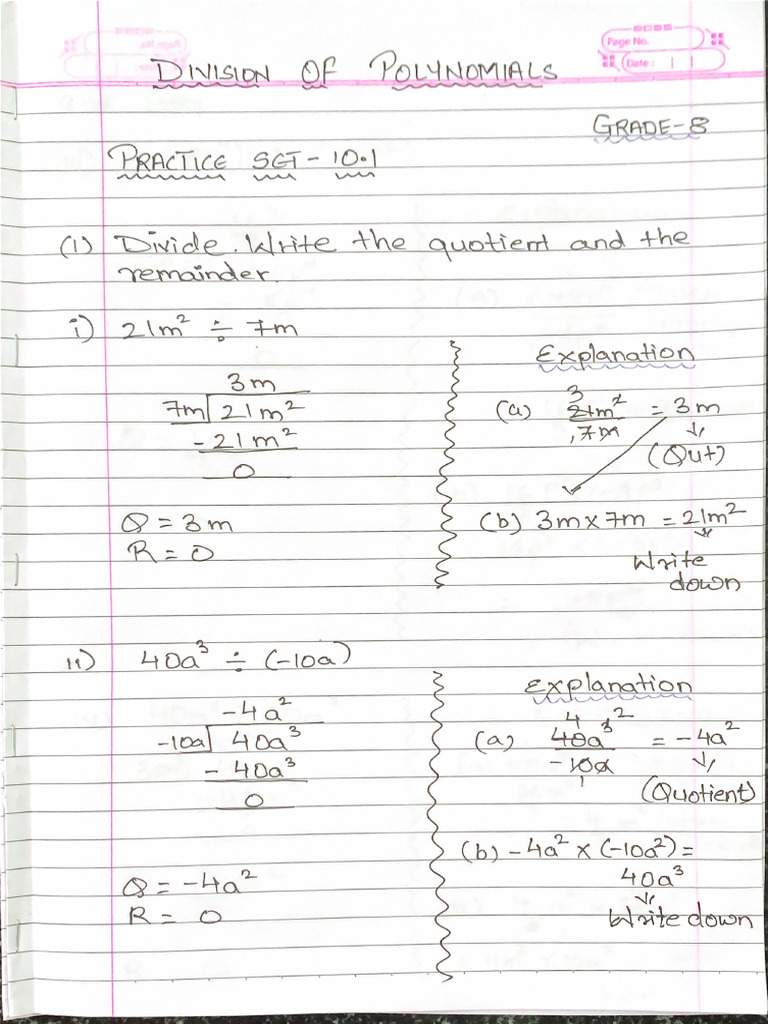 Page No.
Date:
DIVISION OF POLYNOMIALS
GRADE-8
PRACTICE SET - 10.1
(1) Divide. Write the quotient and the
remainder.
i) 21m² ÷ 7m
3m
7m 21m²
- 21m²
0
Q = 3m
R = 0
Explanation
(a) 3 21m² / 7m = 3m
(Qut)
(b) 3m × 7m = 21m²
Write
down
ii) 40a³ ÷ (-10a)
-4a²
-10a 40a³
- 40a³
0
Q = -4a²
R = 0
Explanation
4 2
(a) 40a³ / -10a = -4a²
1
(Quotient)
(b) -4a² × (-10a²) =
40a³
Write down